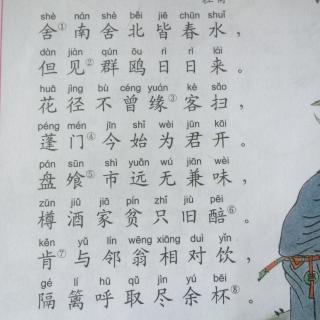 shè nán shè běi jiē chūn shuǐ
舍①南舍北皆春水，
dàn jiàn qún ōu rì rì lái
但见②群鸥日日来。
huā jìng bù céng yuán kè sǎo
花径不曾缘③客扫，
péng mén jīn shǐ wèi jūn kāi
蓬门④今始为君开。
pán sūn shì yuǎn wú jiān wèi
盘飧⑤市远无兼味，
zūn jiǔ jiā pín zhǐ jiù pēi
樽酒家贫只旧醅⑥。
kěn yǔ lín wēng xiāng duì yǐn
肯⑦与邻翁相对饮，
gé lí hū qǔ jìn yú bēi
隔篱呼取尽余杯⑧。